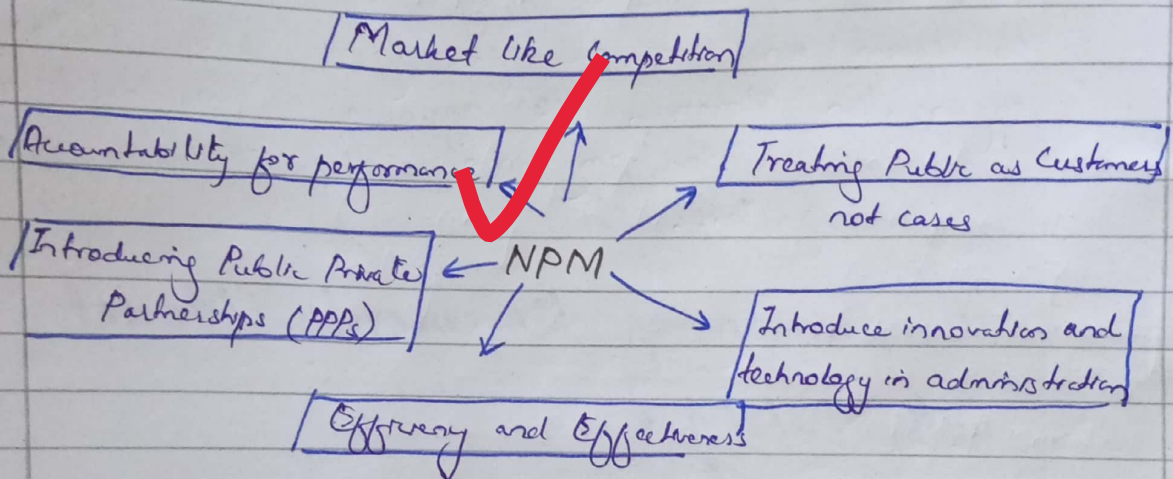 Market like Competition
Accountability for performance
Treating Public as Customers
not cases
Introducing Public Private
Partnerships (PPPs)
NPM
Introduce innovation and
technology in administration
Efficiency and Effectiveness